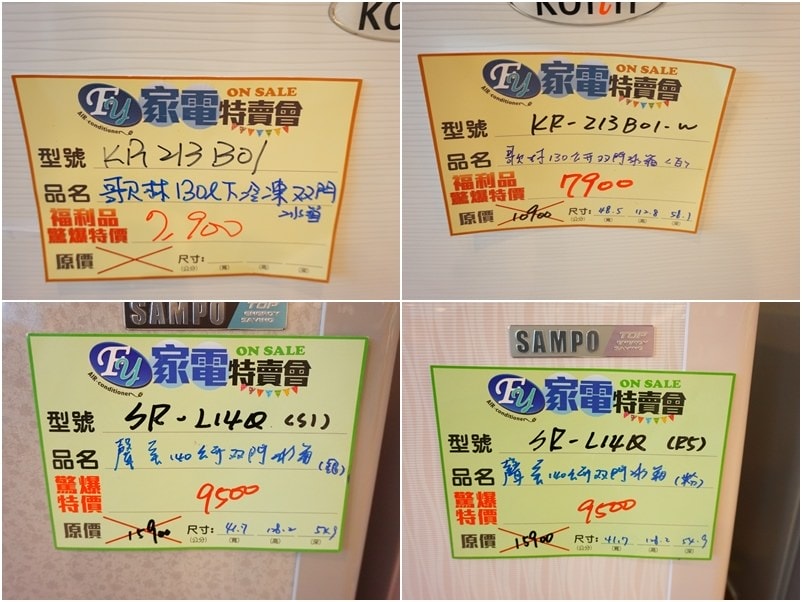 KO
FY 家電特賣會 ON SALE
Air-conditioner
型號 KR213B01
品名 歌林130L下冷凍双門
冰箱
福利品
驚爆特價 7,900
原價 尺寸:
(公分) (寬) (高) (深)
Kolin
FY 家電特賣會 ON SALE
Air-conditioner
型號 KR-213B01-W
品名 歌林130公升双門冰箱(白)
福利品
驚爆特價 7900
原價 10900 尺寸: 48.5 112.8 58.1
(公分) (寬) (高) (深)
SAMPO TOP ENERGY SAVING
FY 家電特賣會 ON SALE
Air-conditioner
型號 SR-L14Q (S1)
品名 聲宝140公升双門冰箱(銀)
驚爆
特價 9500
原價 15900 尺寸: 47.7 128.2 54.9
(公分) (寬) (高) (深)
SAMPO TOP ENERGY SAVING
FY 家電特賣會 ON SALE
Air-conditioner
型號 SR-L14Q (R5)
品名 聲宝140公升双門冰箱(粉)
驚爆
特價 9500
原價 15900 尺寸: 47.7 128.2 54.9
(公分) (寬) (高) (深)